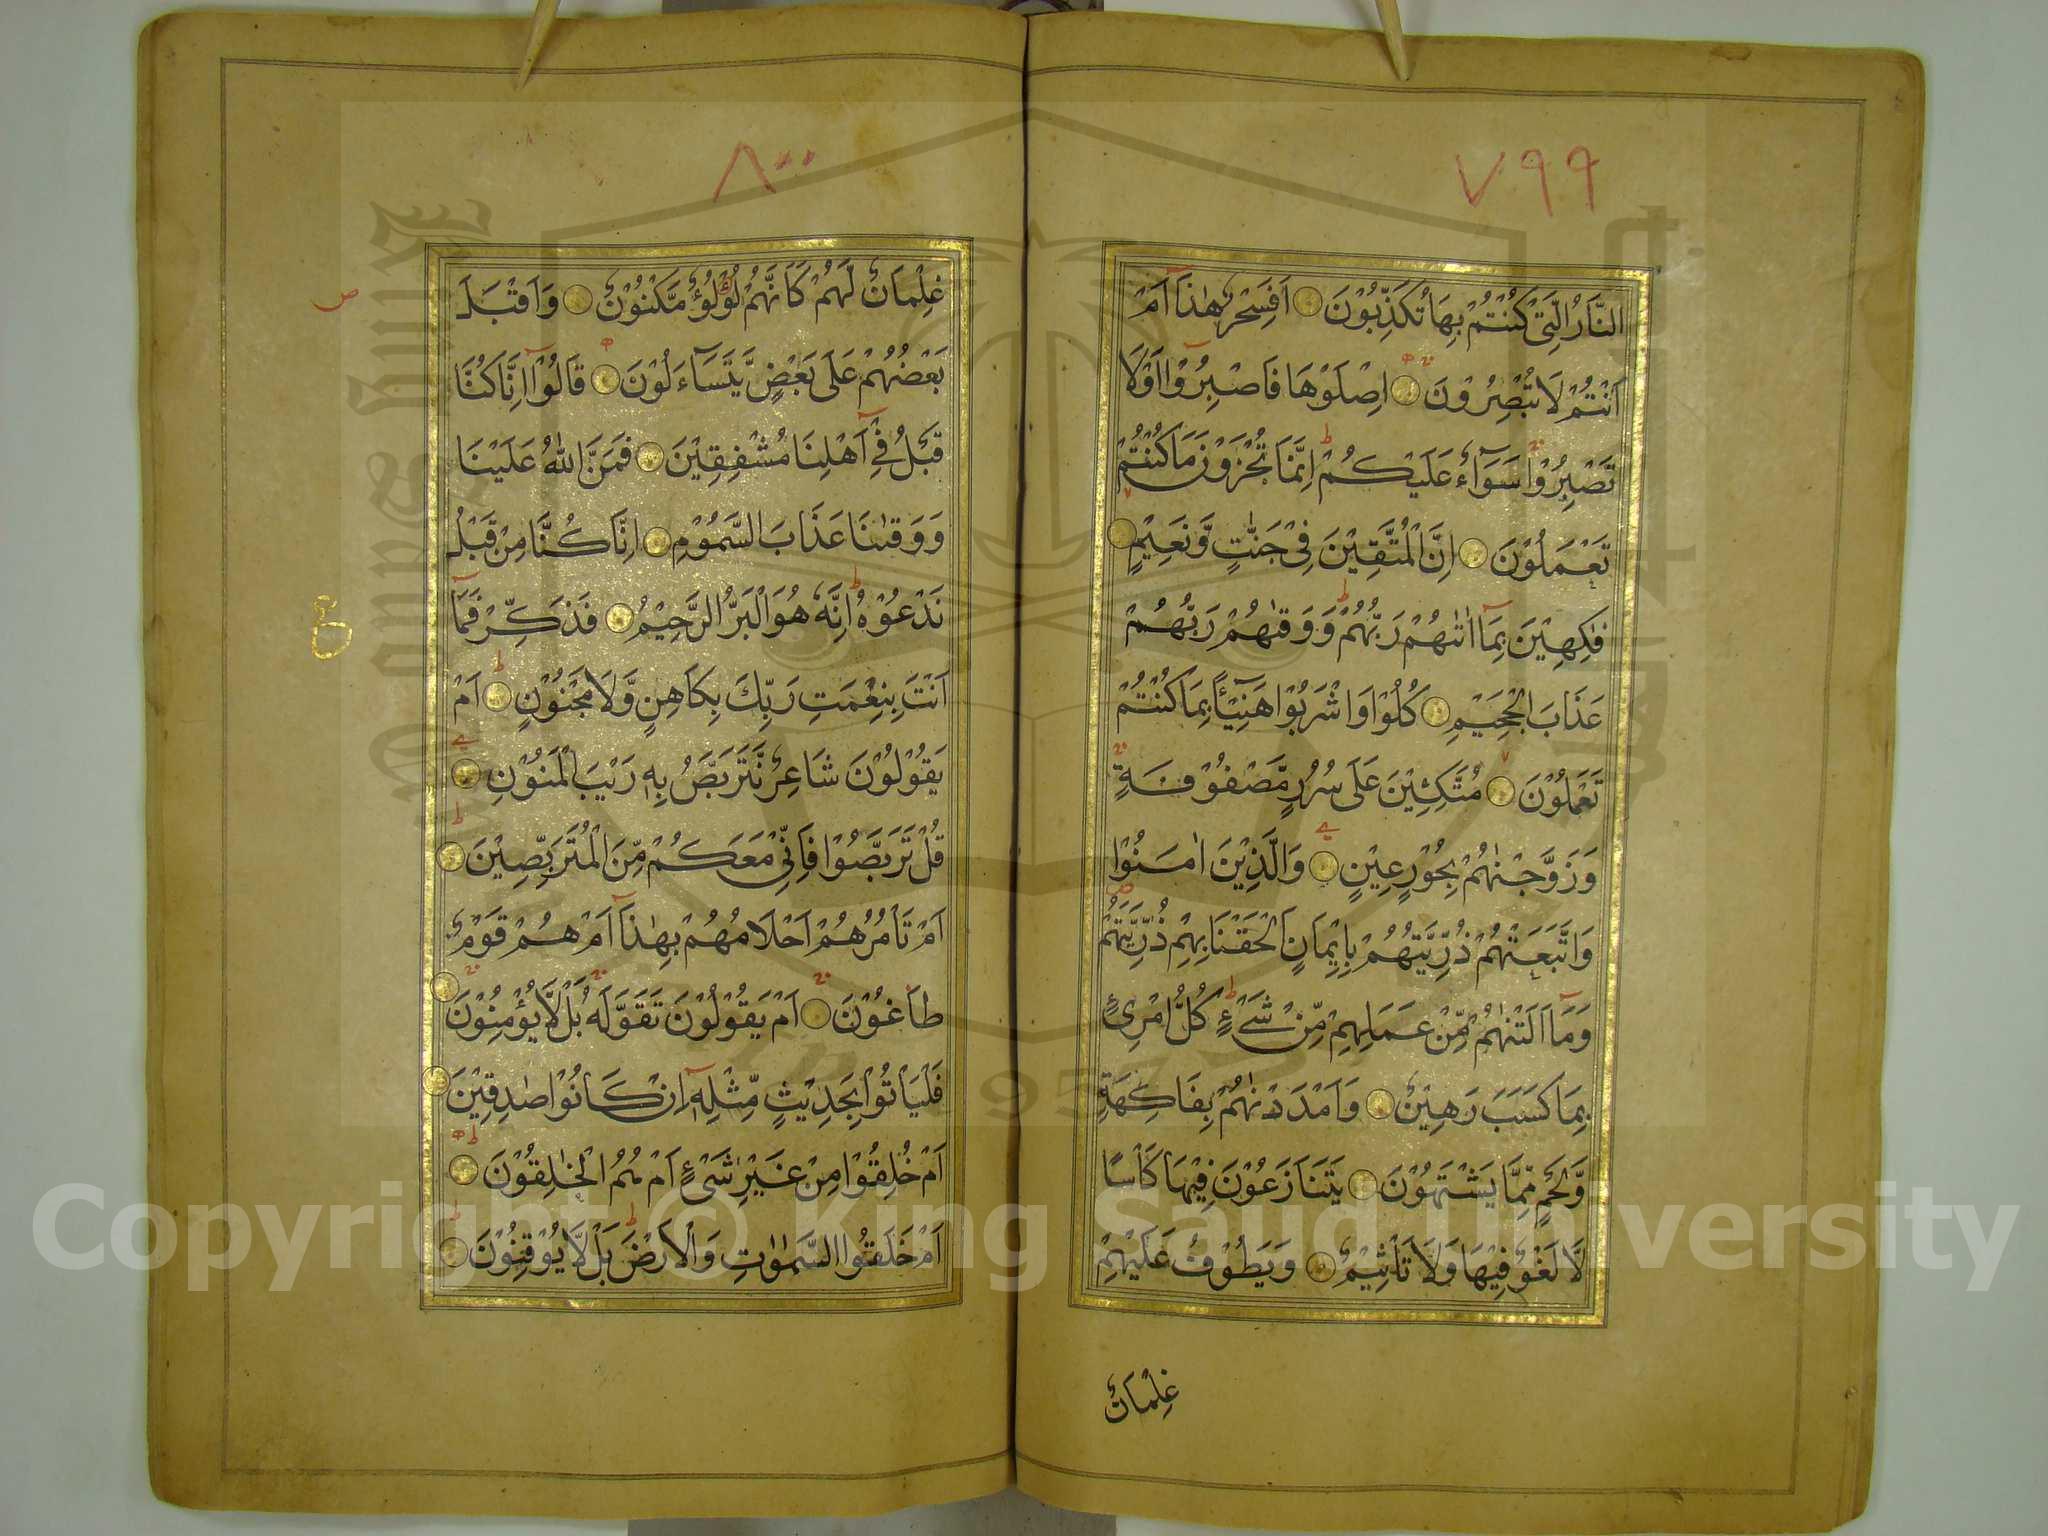 ٧٩٩
النَّارُ الَّتِىْ كُنْتُمْ بِهَا تُكَذِّبُوْنَ اَفَسِحْرٌ هٰذَآ اَمْ
اَنْتُمْ لَا تُبْصِرُوْنَ اِصْلَوْهَا فَاصْبِرُوْٓا اَوْلَا
تَصْبِرُوْا سَوَآءٌ عَلَيْكُمْ اِنَّمَا تُجْزَوْنَ مَا كُنْتُمْ
تَعْمَلُوْنَ اِنَّ الْمُتَّقِيْنَ فِىْ جَنّٰتٍ وَّنَعِيْمٍ
فٰكِهِيْنَ بِمَآ اٰتٰىهُمْ رَبُّهُمْ وَوَقٰىهُمْ رَبُّهُمْ
عَذَابَ الْجَحِيْمِ كُلُوْا وَاشْرَبُوْا هَنِيْٓئًا بِمَا كُنْتُمْ
تَعْمَلُوْنَ مُتَّكِئِيْنَ عَلٰى سُرُرٍ مَّصْفُوْفَةٍ
وَزَوَّجْنٰهُمْ بِحُوْرٍ عِيْنٍ وَالَّذِيْنَ اٰمَنُوْا
وَاتَّبَعَتْهُمْ ذُرِّيَّتُهُمْ بِاِيْمَانٍ اَلْحَقْنَا بِهِمْ ذُرِّيَّتَهُمْ
وَمَآ اَلَتْنٰهُمْ مِّنْ عَمَلِهِمْ مِّنْ شَىْءٍ كُلُّ امْرِئٍ
بِمَا كَسَبَ رَهِيْنٌ وَاَمْدَدْنٰهُمْ بِفَاكِهَةٍ
وَّلَحْمٍ مِّمَّا يَشْتَهُوْنَ يَتَنَازَعُوْنَ فِيْهَا كَاْسًا
لَّا لَغْوٌ فِيْهَا وَلَا تَاْثِيْمٌ وَيَطُوْفُ عَلَيْهِمْ
غِلْمَانٌ
٨٠٠
غِلْمَانٌ لَّهُمْ كَاَنَّهُمْ لُؤْلُؤٌ مَّكْنُوْنٌ وَاَقْبَلَ
بَعْضُهُمْ عَلٰى بَعْضٍ يَّتَسَآءَلُوْنَ قَالُوْٓا اِنَّا كُنَّا
قَبْلُ فِىْٓ اَهْلِنَا مُشْفِقِيْنَ فَمَنَّ اللّٰهُ عَلَيْنَا
وَوَقٰىنَا عَذَابَ السَّمُوْمِ اِنَّا كُنَّا مِنْ قَبْلُ
نَدْعُوْهُ اِنَّهٗ هُوَ الْبَرُّ الرَّحِيْمُ فَذَكِّرْ فَمَآ
اَنْتَ بِنِعْمَتِ رَبِّكَ بِكَاهِنٍ وَّلَا مَجْنُوْنٍ اَمْ
يَقُوْلُوْنَ شَاعِرٌ نَّتَرَبَّصُ بِهٖ رَيْبَ الْمَنُوْنِ
قُلْ تَرَبَّصُوْا فَاِنِّىْ مَعَكُمْ مِّنَ الْمُتَرَبِّصِيْنَ
اَمْ تَاْمُرُهُمْ اَحْلَامُهُمْ بِهٰذَآ اَمْ هُمْ قَوْمٌ
طَاغُوْنَ اَمْ يَقُوْلُوْنَ تَقَوَّلَهٗ بَلْ لَّا يُؤْمِنُوْنَ
فَلْيَاْتُوْا بِحَدِيْثٍ مِّثْلِهٖٓ اِنْ كَانُوْا صٰدِقِيْنَ
اَمْ خُلِقُوْا مِنْ غَيْرِ شَىْءٍ اَمْ هُمُ الْخٰلِقُوْنَ
اَمْ خَلَقُوا السَّمٰوٰتِ وَالْاَرْضَ بَلْ لَّا يُوْقِنُوْنَ
ص
ع
Copyright © King Saud University